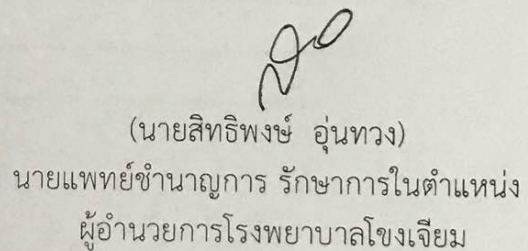 (นายสิทธิพงษ์ อุ่นทวง)
นายแพทย์ชำนาญการ รักษาการในตำแหน่ง
ผู้อำนวยการโรงพยาบาลโขงเจียม